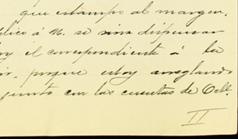 que estampo al margen.
plico á V. se sirva dispensar
y el correspondiente á la
porque estoy arreglando
junto con las cuentas de Oct.
II